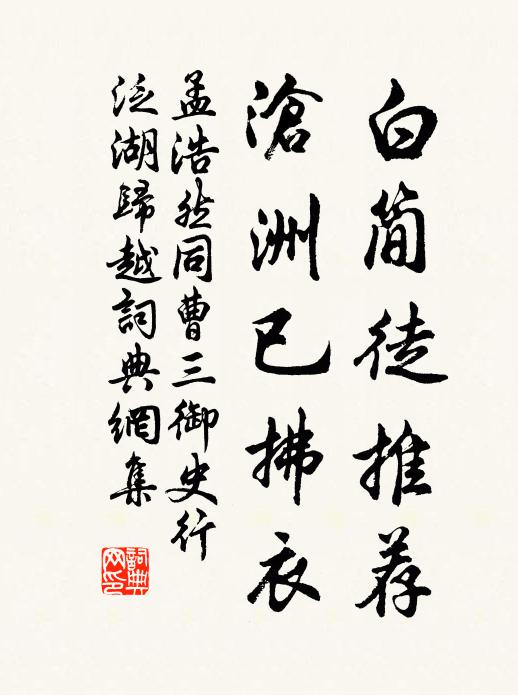 白简徒推荐
滄洲已拂衣
孟浩然同曹三御史行
泛湖歸越詞典網集
詞典
网印